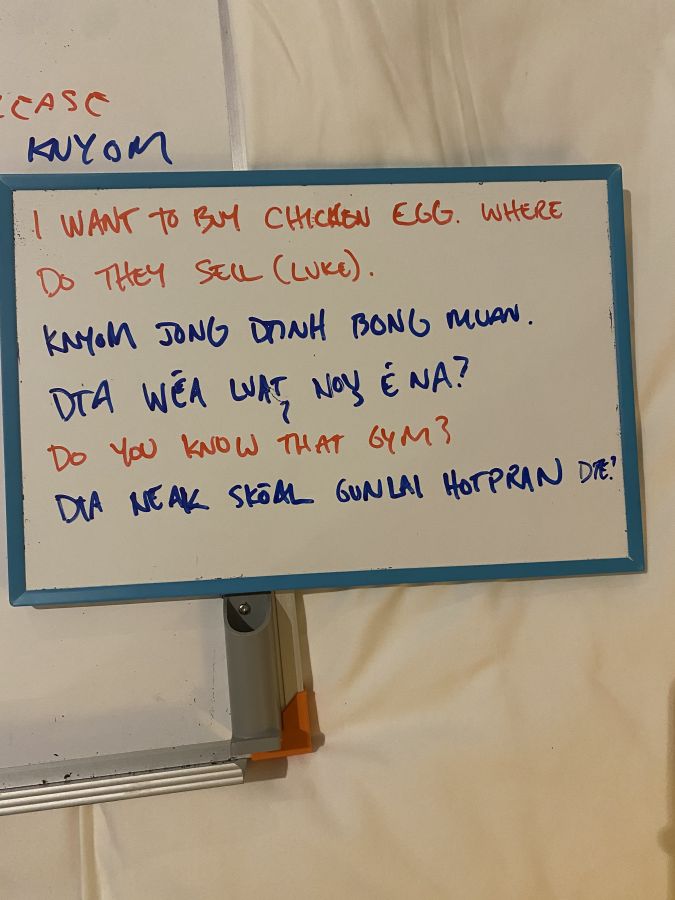 KNYOM
I WANT TO BUY CHICKEN EGG. WHERE
DO THEY SELL (LUKE).
KNYOM JONG DTINH BONG MUAN.
DTA WÉA LUAT NOY É NA?
?
DO YOU KNOW THAT GYM?
DTA NEAK SKOAL GUNLAI HOTPRAN DTE?